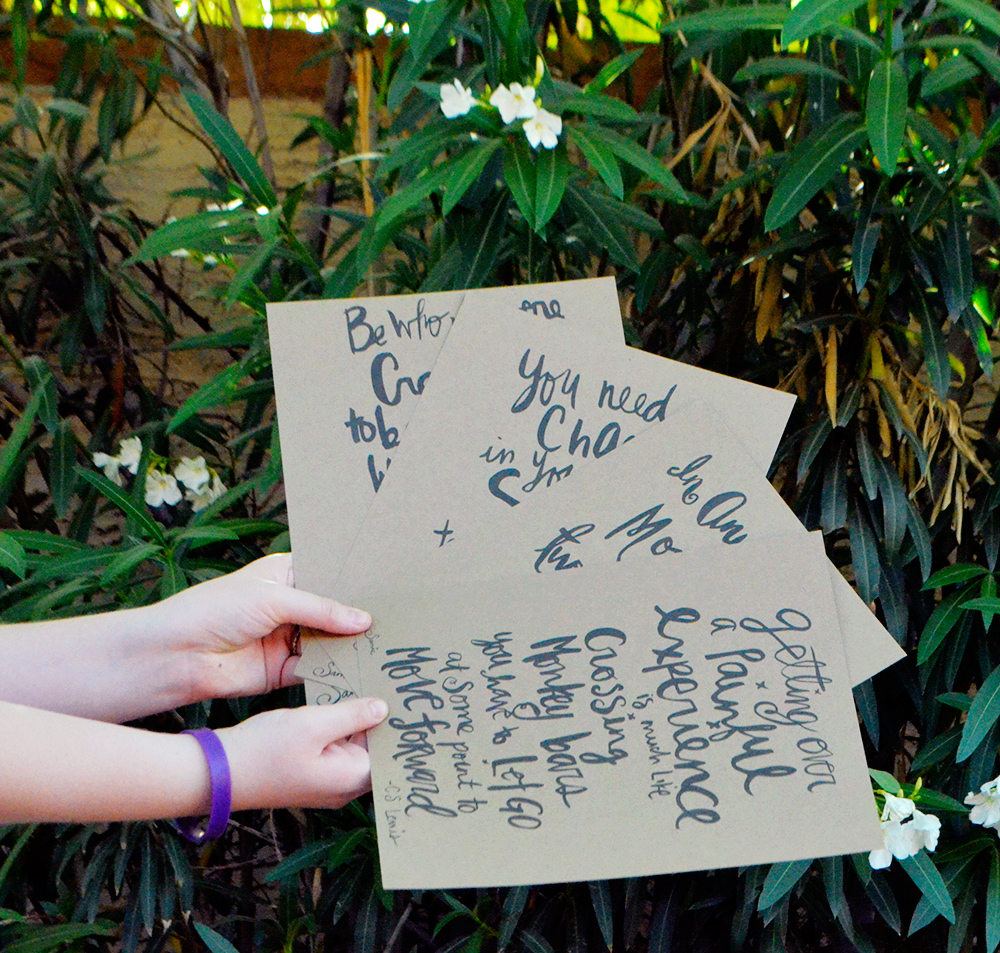 Be Who
to b
me
You need
Cha
in
+
In An
Mo
Getting over
a Painful
experience
is much like
Crossing
Monkey bars
you have to Let GO
at Some point to
Move forward
-C.S Lewis
Sam
Sam